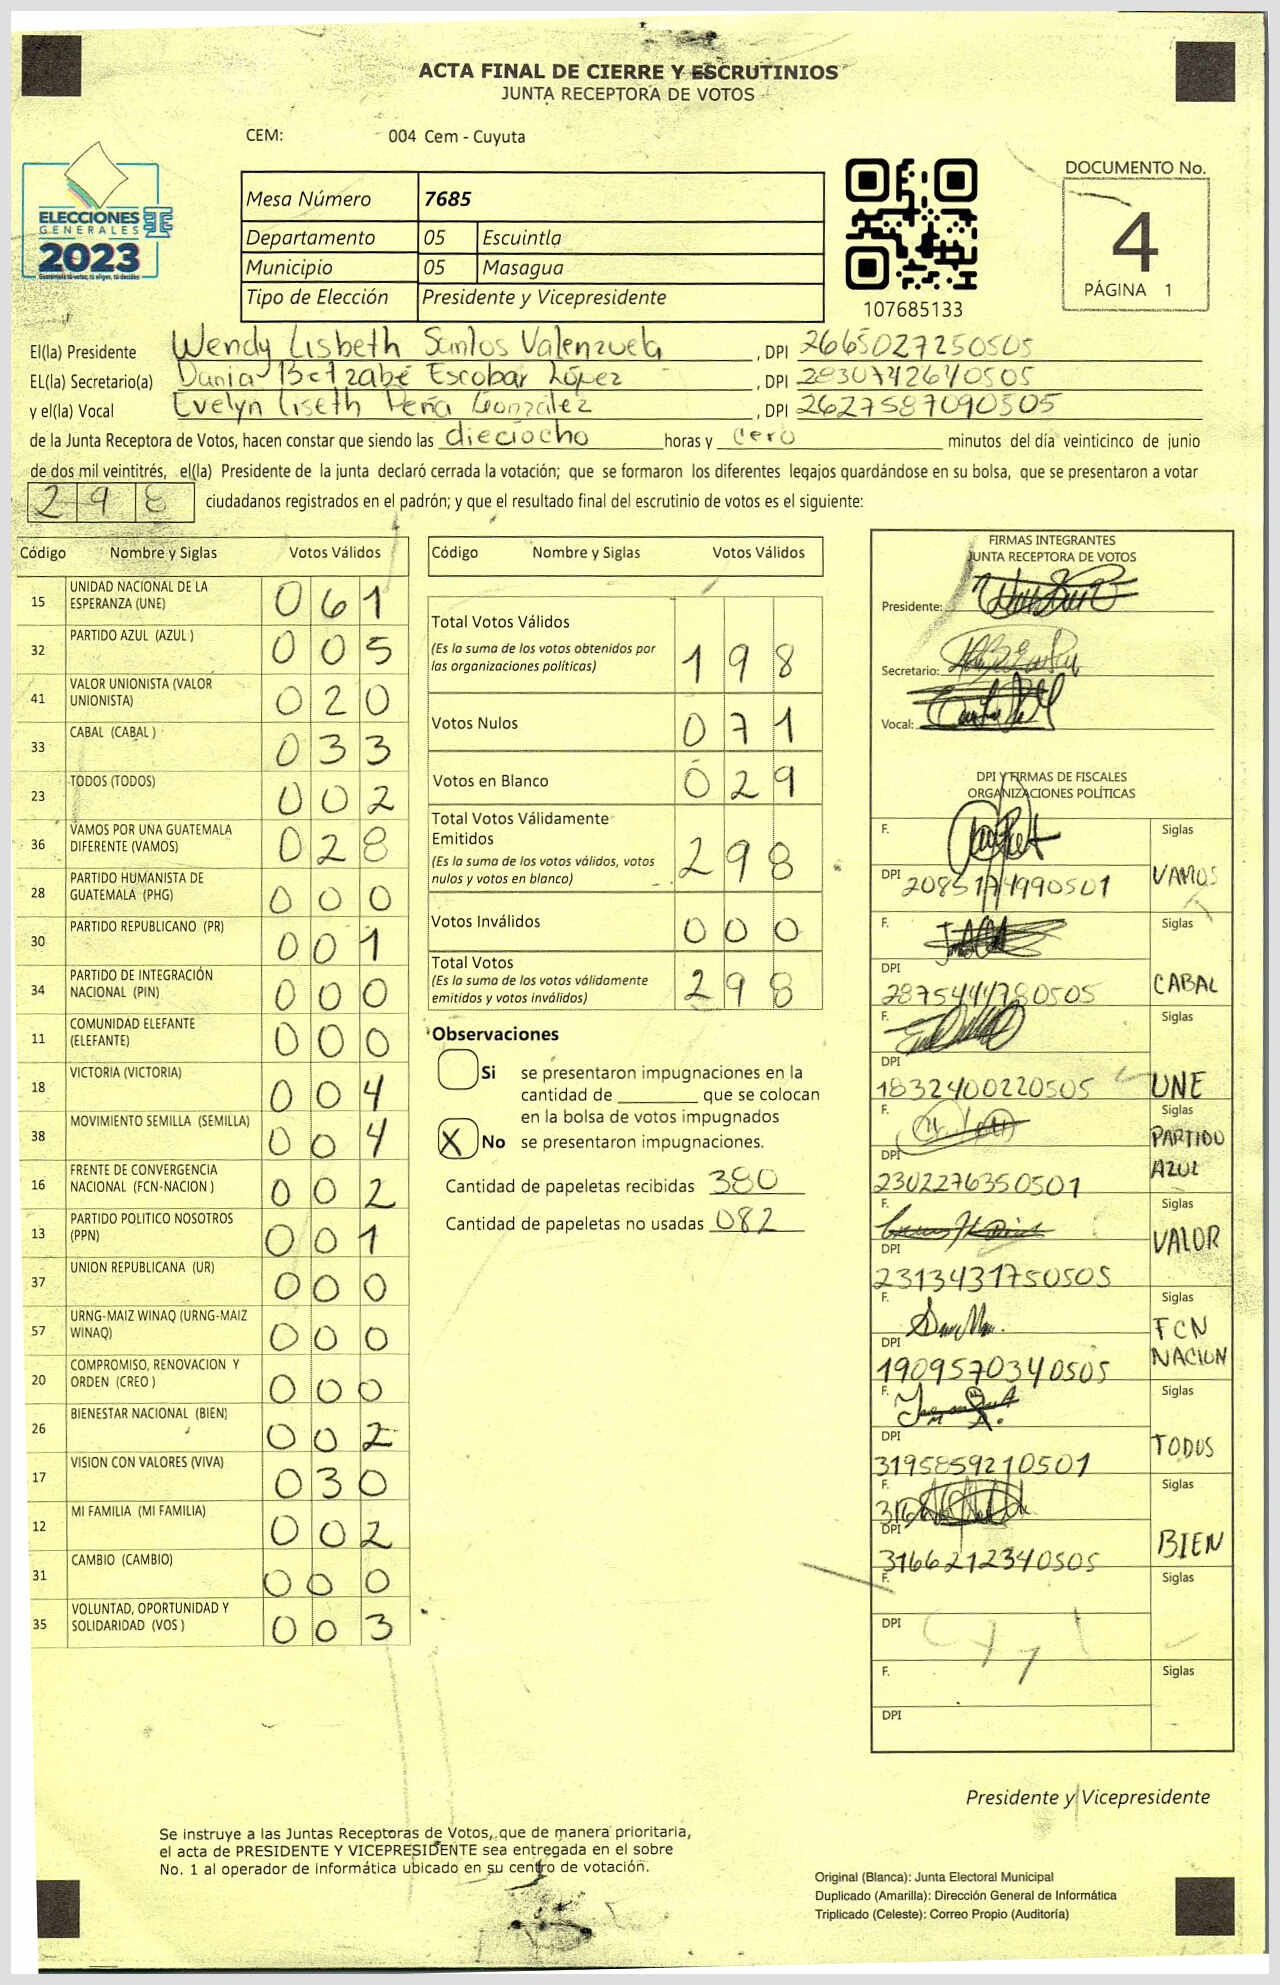 ACTA FINAL DE CIERRE Y ESCRUTINIOS
JUNTA RECEPTORA DE VOTOS
CEM: 004 Cem - Cuyuta
ELECCIONES
GENERALES
2023
Mesa Número 7685
Departamento 05 Escuintla
Municipio 05 Masagua
Tipo de Elección Presidente y Vicepresidente
107685133
DOCUMENTO No.
4
PÁGINA 1
El(la) Presidente Wendy Lisbeth Santos Valenzuela, DPI 2665027250505
EL(la) Secretario(a) Dania Betzabé Escobar López, DPI 2830742640505
y el(la) Vocal Evelyn Liseth Peña González, DPI 2627587090505
de la Junta Receptora de Votos, hacen constar que siendo las dieciocho horas y cero minutos del día veinticinco de junio
de dos mil veintitrés, el(la) Presidente de la junta declaró cerrada la votación; que se formaron los diferentes legajos guardándose en su bolsa, que se presentaron a votar
298 ciudadanos registrados en el padrón; y que el resultado final del escrutinio de votos es el siguiente:
Código Nombre y Siglas Votos Válidos
15 UNIDAD NACIONAL DE LA ESPERANZA (UNE) 061
32 PARTIDO AZUL (AZUL ) 005
41 VALOR UNIONISTA (VALOR UNIONISTA) 020
33 CABAL (CABAL ) 033
23 TODOS (TODOS) 002
36 VAMOS POR UNA GUATEMALA DIFERENTE (VAMOS) 028
28 PARTIDO HUMANISTA DE GUATEMALA (PHG) 000
30 PARTIDO REPUBLICANO (PR) 001
34 PARTIDO DE INTEGRACIÓN NACIONAL (PIN) 000
11 COMUNIDAD ELEFANTE (ELEFANTE) 000
18 VICTORIA (VICTORIA) 004
38 MOVIMIENTO SEMILLA (SEMILLA) 004
16 FRENTE DE CONVERGENCIA NACIONAL (FCN-NACION ) 002
13 PARTIDO POLITICO NOSOTROS (PPN) 001
37 UNION REPUBLICANA (UR) 000
57 URNG-MAIZ WINAQ (URNG-MAIZ WINAQ) 000
20 COMPROMISO, RENOVACION Y ORDEN (CREO ) 000
26 BIENESTAR NACIONAL (BIEN) 002
17 VISION CON VALORES (VIVA) 030
12 MI FAMILIA (MI FAMILIA) 002
31 CAMBIO (CAMBIO) 000
35 VOLUNTAD, OPORTUNIDAD Y SOLIDARIDAD (VOS ) 003
Código Nombre y Siglas Votos Válidos
Total Votos Válidos
(Es la suma de los votos obtenidos por
las organizaciones políticas) 198
Votos Nulos 071
Votos en Blanco 029
Total Votos Válidamente
Emitidos
(Es la suma de los votos válidos, votos
nulos y votos en blanco) 298
Votos Inválidos 000
Total Votos
(Es la suma de los votos válidamente
emitidos y votos inválidos) 298
Observaciones
Si se presentaron impugnaciones en la
cantidad de ________ que se colocan
en la bolsa de votos impugnados
X No se presentaron impugnaciones.
Cantidad de papeletas recibidas 380
Cantidad de papeletas no usadas 082
FIRMAS INTEGRANTES
JUNTA RECEPTORA DE VOTOS
Presidente:
Secretario:
Vocal:
DPI Y FIRMAS DE FISCALES
ORGANIZACIONES POLÍTICAS
F. Siglas
DPI 2085174990501 VAMOS
F. Siglas
DPI 2875444780505 CABAL
F. Siglas
DPI 1832400220505 UNE
F. Siglas
DPI 2302276350501 PARTIDO AZUL
F. Siglas
DPI 2313431750505 VALOR
F. Siglas
DPI 1909570340505 FCN NACION
F. Siglas
DPI 3195859210501 TODOS
F. Siglas
DPI 3166212340505 BIEN
F. Siglas
DPI
F. Siglas
DPI
Presidente y Vicepresidente
Se instruye a las Juntas Receptoras de Votos, que de manera prioritaria,
el acta de PRESIDENTE Y VICEPRESIDENTE sea entregada en el sobre
No. 1 al operador de informática ubicado en su centro de votación.
Original (Blanca): Junta Electoral Municipal
Duplicado (Amarilla): Dirección General de Informática
Triplicado (Celeste): Correo Propio (Auditoría)